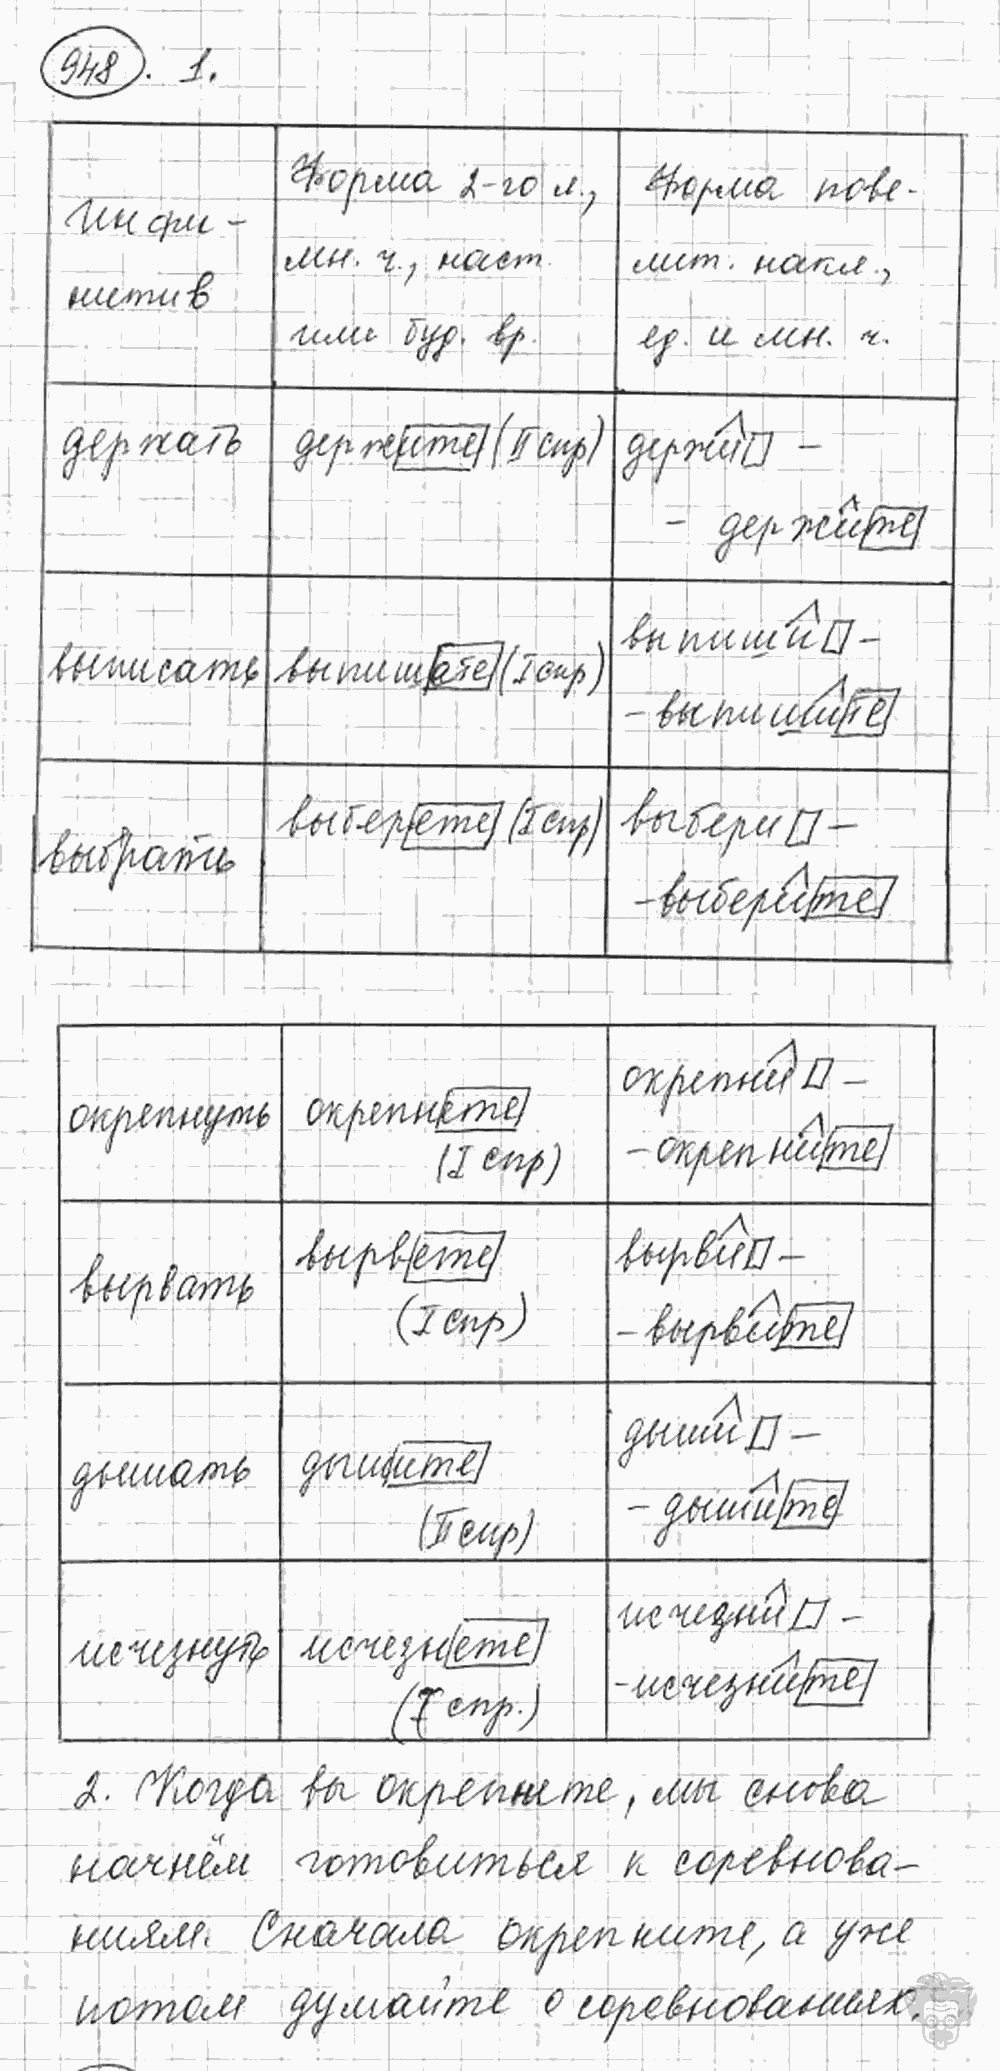 948. 1.
Инфи-
нитив
Форма 2-го л.,
мн. ч., наст.
или буд. вр.
Форма пове-
лит. накл.,
ед. и мн. ч.
держать
держите (II спр)
держи –
– держите
выписать
выпишете (I спр)
выпиши –
– выпишите
выбрать
выберете (I спр)
выбери –
– выберите
окрепнуть
окрепнете
(I спр)
окрепни –
– окрепните
вырвать
вырвете
(I спр)
вырви –
– вырвите
дышать
дышите
(II спр)
дыши –
– дышите
исчезнуть
исчезнете
(I спр.)
исчезни –
– исчезните
2. Когда вы окрепнете, мы снова
начнём готовиться к соревнова-
ниям. Сначала окрепните, а уже
потом думайте о соревнованиях.